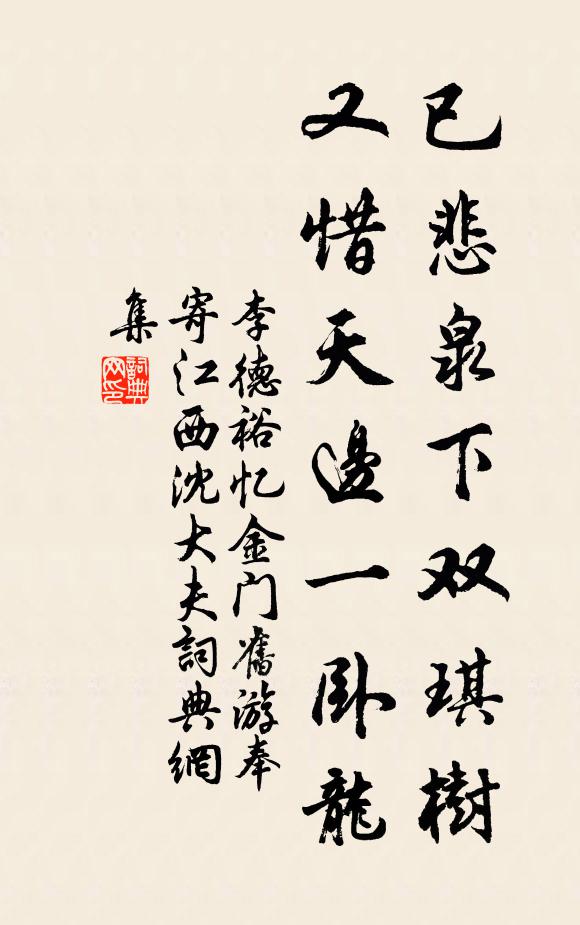 已悲泉下双琪樹
又惜天邊一卧龍
李德裕忆金门舊游奉
寄江西沈大夫詞典網
集
詞典网印